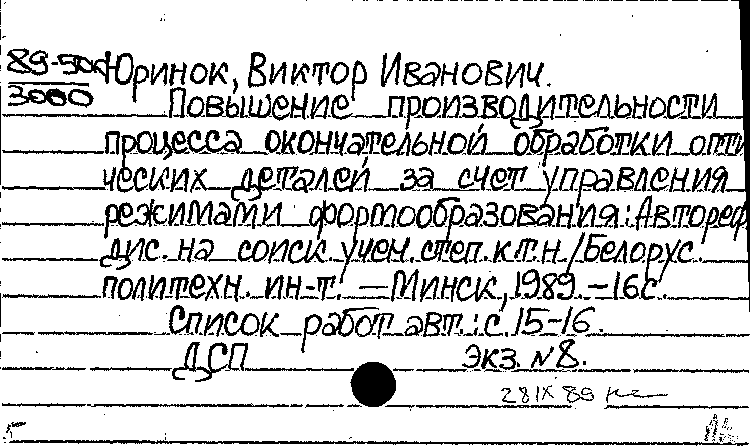 89-50к Юринок, Виктор Иванович.
3000
Повышение производительности
процесса окончательной обработки опти
ческих деталей за счет управления
режимами формообразования: Автореф.
дис. на соиск. учен. степ. к.т.н. / Белорус.
политехн. ин-т. — Минск, 1989. – 16 с.
Список работ авт.: с. 15-16.
ДСП экз. № 8.
28 IX 89
5